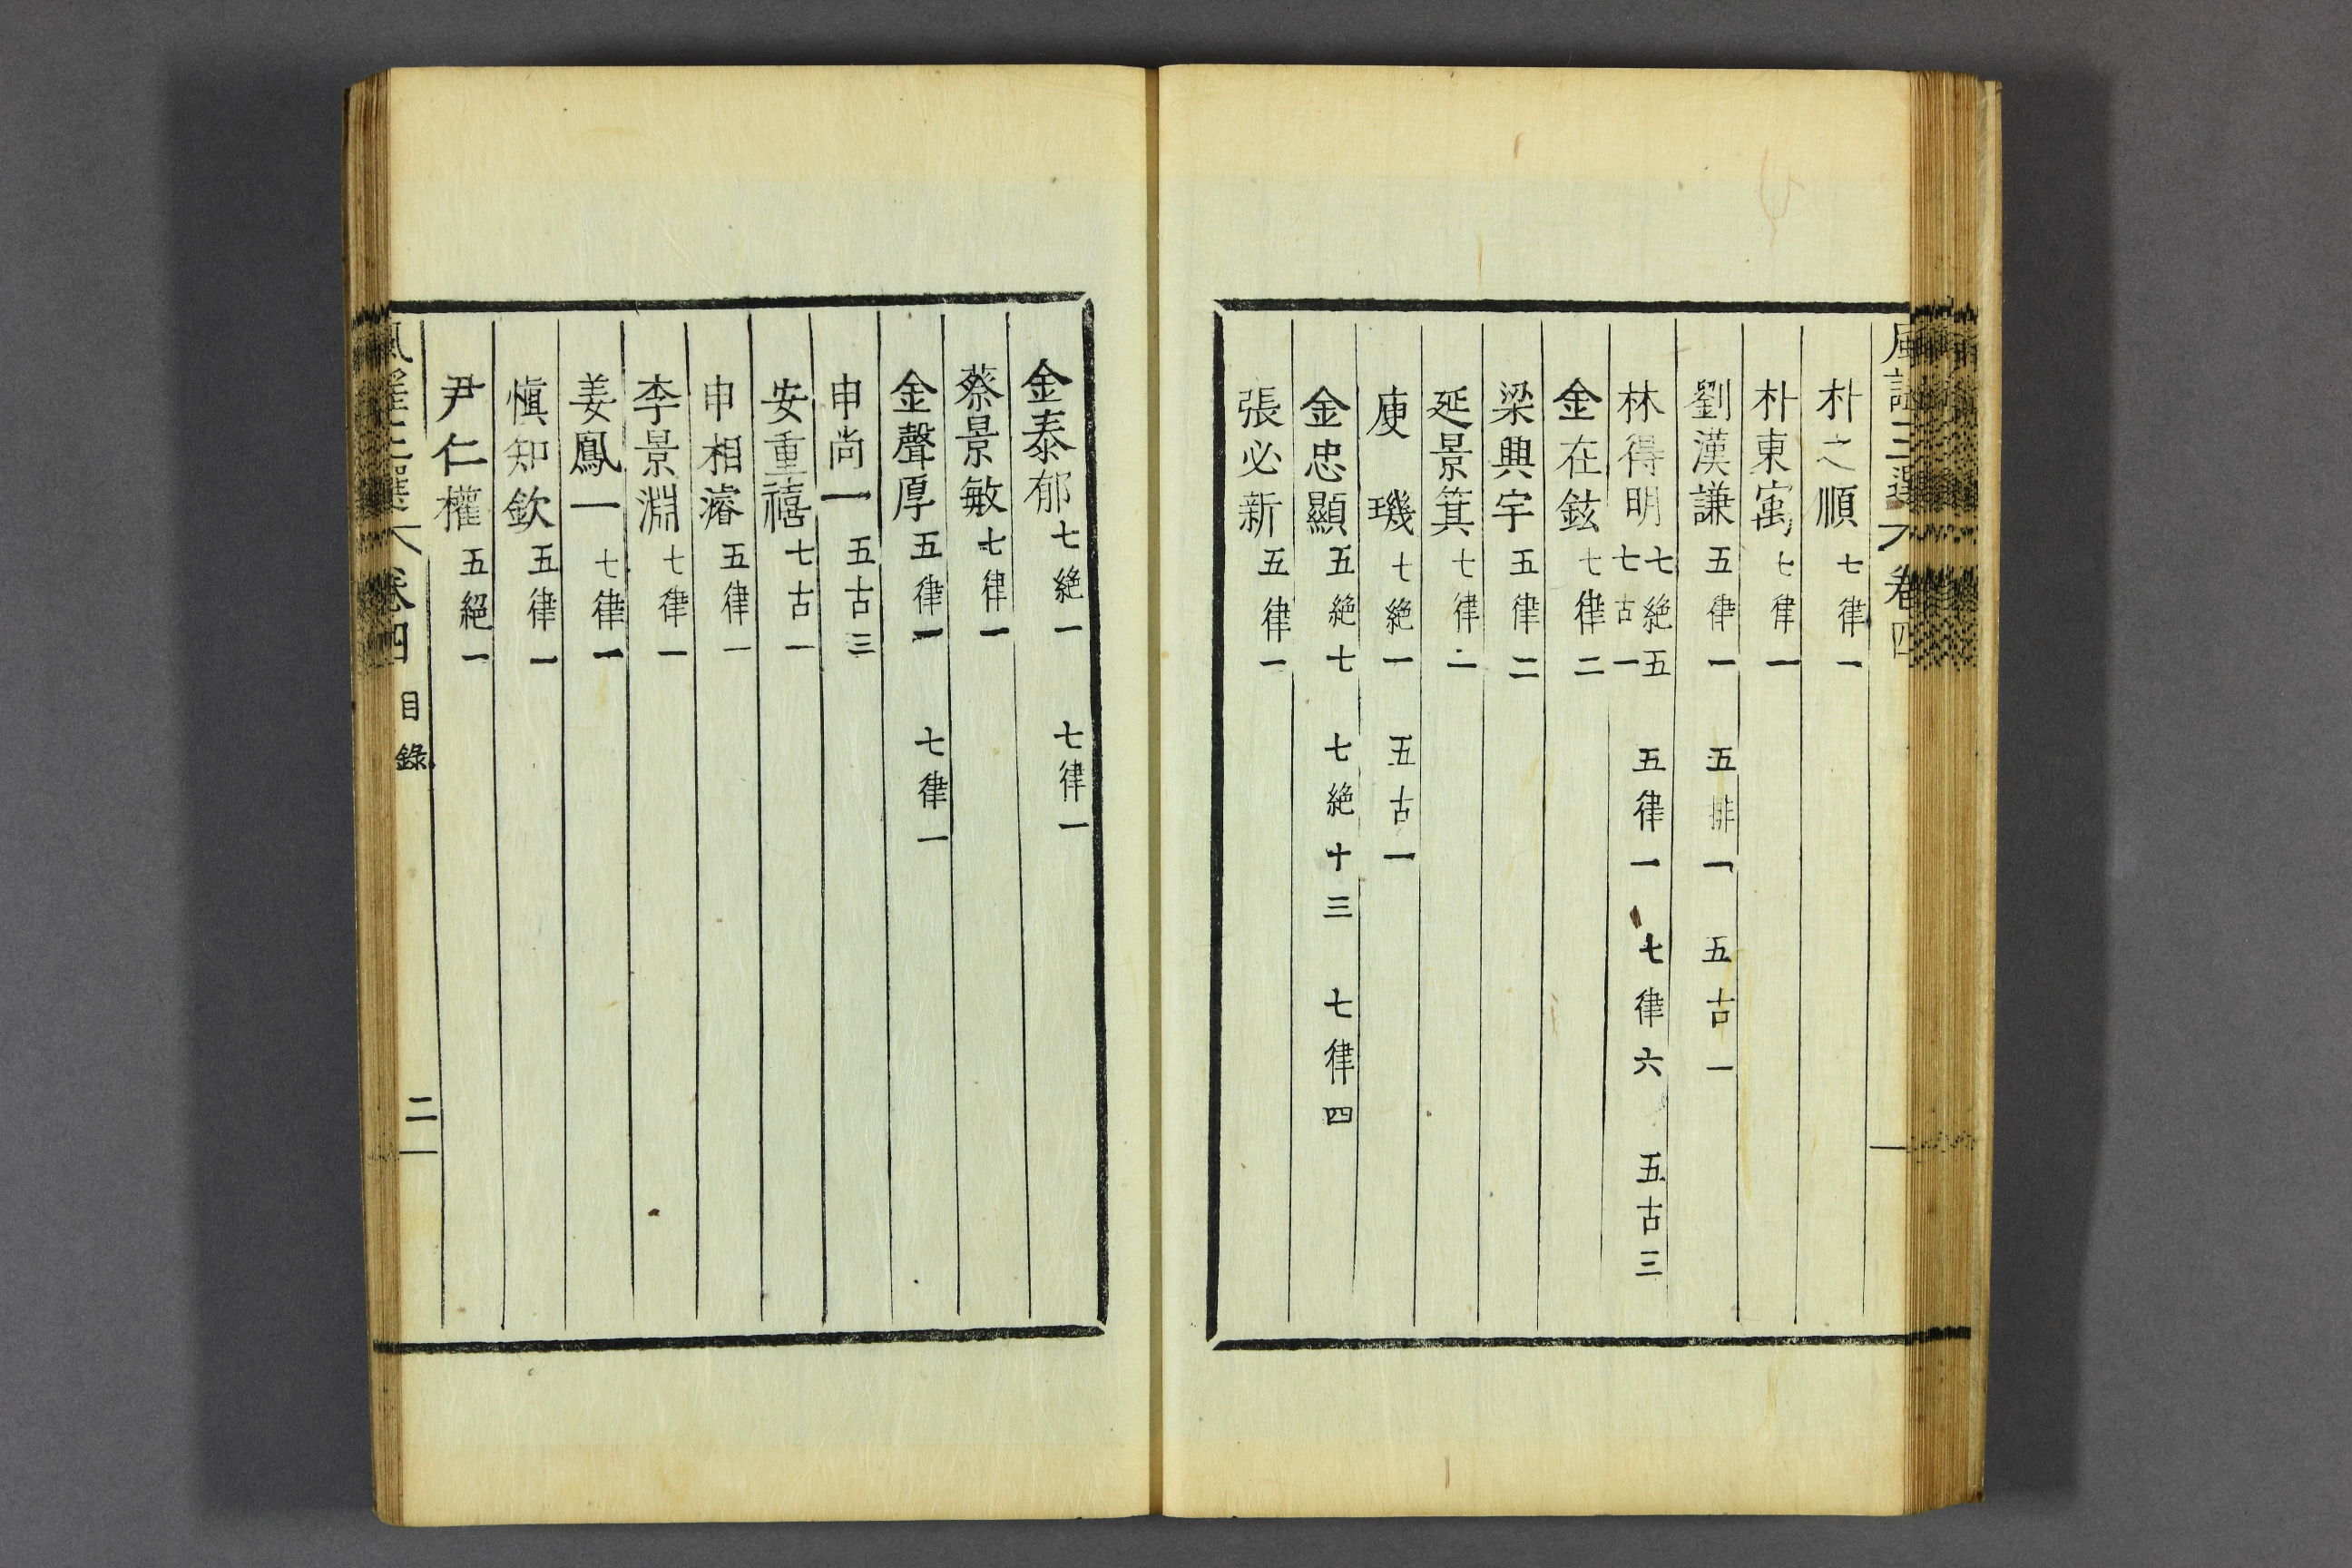 風謠三選 卷四
朴之順 七律一
朴東寓 七律一
劉漢謙 五律一 五排一 五古一
林得明 七絶五 五律一 七律六 五古三 七古一
金在鉉 七律二
梁興宇 五律二
延景箕 七律二
庾璣 七絶一 五古一
金忠顯 五絶七 七絶十三 七律四
張必新 五律一
金泰郁 七絶一 七律一
蔡景敏 七律一
金聲厚 五律一 七律一
申尚一 五古三
安重禧 七古一
申相濬 五律一
李景淵 七律一
姜鳳一 七律一
愼知欽 五律一
尹仁權 五絕一
風謠三選 卷四 目錄 二